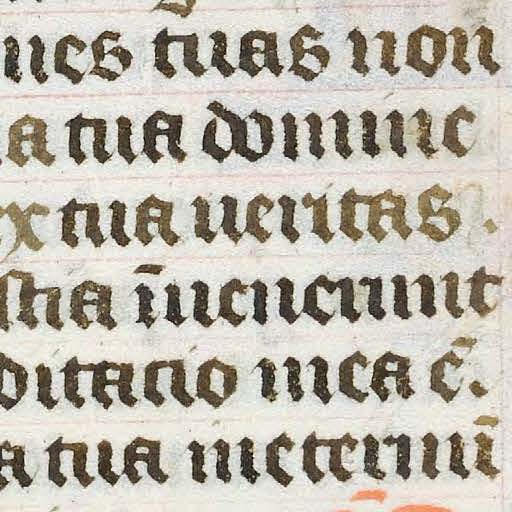 nes tuas non
a tua domine
ex tua ueritas .
stia īuenerunt
ditatio mea ē.
a tua ineternū